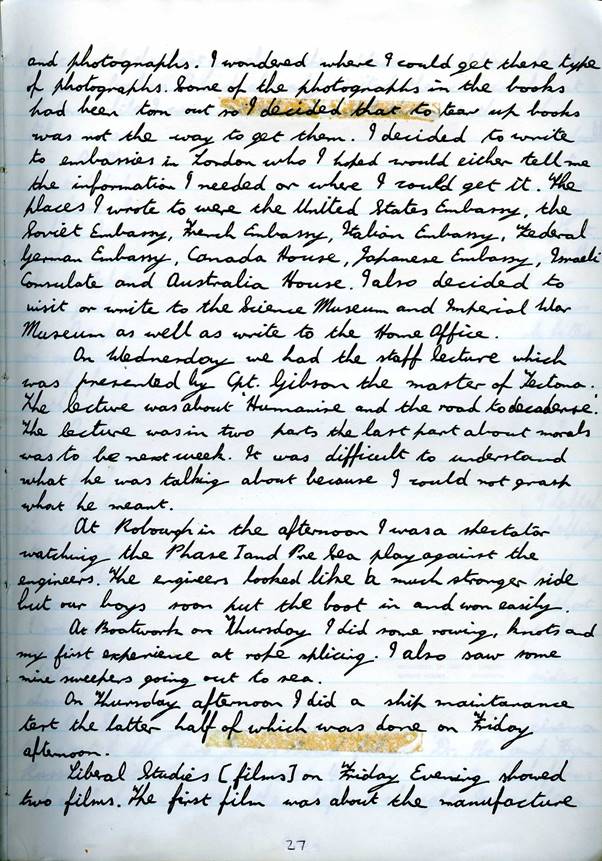 and photographs. I wondered where I could get these type
of photographs. Some of the photographs in the books
had been torn out so I decided that to tear up books
was not the way to get them. I decided to write
to embassies in London who I hoped would either tell me
the information I needed or where I could get it. The
places I wrote to were the United States Embassy, the
Soviet Embassy, French Embassy, Italian Embassy, Federal
German Embassy, Canada House, Japanese Embassy, Israeli
Consulate and Australia House. I also decided to
visit or write to the Science Museum and Imperial War
Museum as well as write to the Home Office.
On Wednesday we had the staff lecture which
was presented by Cpt. Gibson the master of Tectona.
The lecture was about 'Humanise and the road to decadense.'
The lecture was in two parts the last part about morals
was to be next week. It was difficult to understand
what he was talking about because I could not grasp
what he meant.
At Robough in the afternoon I was a spectator
watching the Phase I and Pre Sea play against the
engineers. The engineers looked like a much stronger side
but our boys soon put the boot in and won easily.
At Boatwork on Thursday I did some rowing, knots and
my first experience at rope splicing. I also saw some
mine sweepers going out to sea.
On Thursday afternoon I did a ship maintanance
test the latter half of which was done on Friday
afternoon.
Liberal Studies [films] on Friday Evening showed
two films. The first film was about the manufacture
27